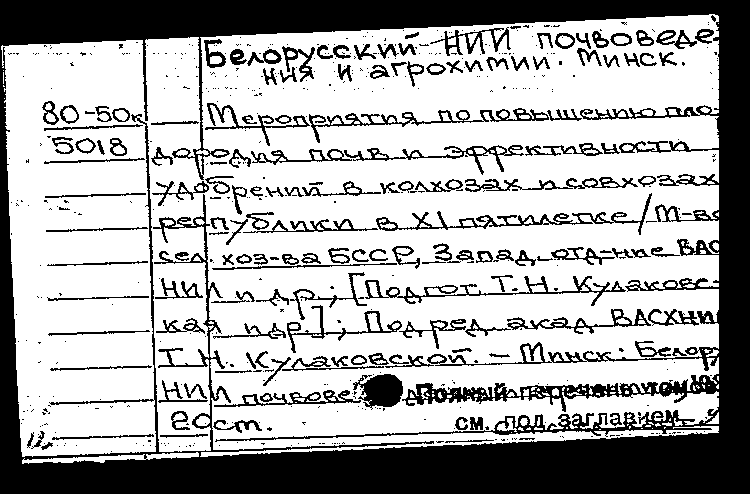 Белорусский НИИ почвоведе-
ния и агрохимии. Минск.
80-50к Мероприятия по повышению пло-
5018 дородия почв и эффективности
удобрений в колхозах и совхозах
республики в XI пятилетке / М-во
сел. хоз-ва БССР, Запад. отд-ние ВАС
НИЛ и др.; [Подгот. Т.Н. Кулаковс-
кая и др.]; Под ред. акад. ВАСХНИ
Т.Н. Кулаковской. – Минск: Белор
НИИ почвове Полный перечень томов
20 ст. см. под заглавием
12